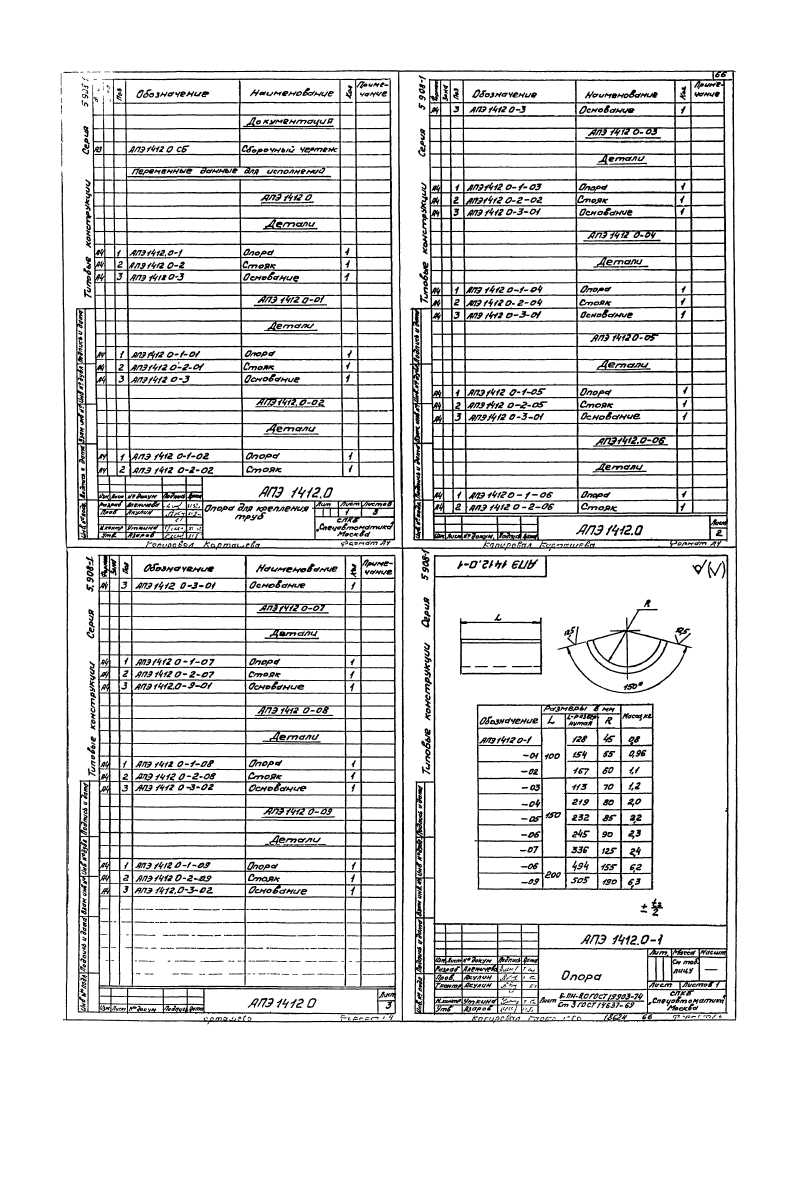 Серия 5.908-1
Типовые конструкции
Поз Обозначение Наименование Кол Приме-
чание
Документация
А3 АПЭ1412 0 СБ Сборочный чертеж
Переменные данные для исполнений
АПЭ 1412 0
Детали
А4 1 АПЭ1412.0-1 Опора 1
А4 2 АПЭ1412 0-2 Стояк 1
А4 3 АПЭ1412 0-3 Основание 1
АПЭ 1412 0-01
Детали
А4 1 АПЭ1412 0-1-01 Опора 1
А4 2 АПЭ1412 0-2-01 Стояк 1
А4 3 АПЭ1412 0-3 Основание 1
АПЭ1412.0-02
Детали
А4 1 АПЭ 1412 0-1-02 Опора 1
А4 2 АПЭ 1412 0-2-02 Стояк 1
АПЭ 1412.0
Изм Лист № Докум Подпись Дата
Разраб Аленичева
Пров Акулин
Н контр Уткина
Утв. Азаров
Опора для крепления
труб
Лит Лист Листов
1 3
СПКБ
„Спецавтоматика"
Москва
Копировал Карташева Формат А4
66
Серия 5 908-1
Типовые конструкции
Формат Зона Поз Обозначение Наименование Кол. Приме-
чание
А4 3 АПЭ 1412 0-3 Основание 1
АПЭ 1412 0-03
Детали
А4 1 АПЭ1412 0-1-03 Опора 1
А4 2 АПЭ1412 0-2-02 Стояк 1
А4 3 АПЭ1412 0-3-01 Основание 1
АПЭ 1412 0-04
Детали
А4 1 АПЭ1412 0-1-04 Опора 1
А4 2 АПЭ1412 0-2-04 Стояк 1
А4 3 АПЭ 1412 0-3-01 Основание 1
АПЭ 1412 0-05
Детали
А4 1 АПЭ 1412 0-1-05 Опора 1
А4 2 АПЭ 1412 0-2-05 Стояк 1
А4 3 АПЭ1412 0-3-01 Основание 1
АПЭ1412.0-06
Детали
А4 1 АПЭ 1412 0-1-06 Опора 1
А4 2 АПЭ 1412 0-2-06 Стояк 1
АПЭ 1412.0
Лист
2
Изм Лист № Докум. Подпись Дата
Копировал Карташева Формат А4
Серия 5.908-1
Типовые конструкции
Формат Зона Поз Обозначение Наименование Кол Приме-
чание
А4 3 АПЭ 1412 0-3-01 Основание 1
АПЭ 1412 0-07
Детали
А4 1 АПЭ1412 0-1-07 Опора 1
А4 2 АПЭ 1412 0-2-07 Стояк 1
А4 3 АПЭ1412.0-3-01 Основание 1
АПЭ 1412 0-08
Детали
А4 1 АПЭ 1412 0-1-08 Опора 1
А4 2 АПЭ1412 0-2-08 Стояк 1
А4 3 АПЭ1412 0-3-02 Основание 1
АПЭ1412 0-09
Детали
А4 1 АПЭ 1412 0-1-09 Опора 1
А4 2 АПЭ1412 0-2-09 Стояк 1
А4 3 АПЭ 1412.0-3-02 Основание 1
АПЭ 1412 0
Лист
3
Изм Лист № Докум Подпись Дата
Серия 5 908-1
Типовые конструкции
АПЭ 1412.0-1
L
R
12,5
12,5
150°
Размеры в мм
Обозначение L L-развер-
нутая R Масса, кг
АПЭ1412 0-1 128 45 0,8
-01 100 154 55 0,96
-02 167 60 1,1
-03 113 70 1,2
-04 219 80 2,0
-05 150 232 85 2,2
-06 245 90 2,3
-07 336 125 2,4
-06 200 494 155 6,2
-09 505 190 6,3
± t2
2
АПЭ 1412.0-1
Изм Лист № Докум Подпись Дата
Разраб Аленичева
Пров. Акулин
Т контр Акулин
Н.контр Уткина
Утв Азаров
Опора
Лит. Масса Масшт
См таб.
лицу —
Лист Листов 1
Лист Б-ПН-8.0 ГОСТ 19903-74
Ст 3 ГОСТ 14637-69
СПКБ
„Спецавтоматика"
Москва
Копировал
18624 66